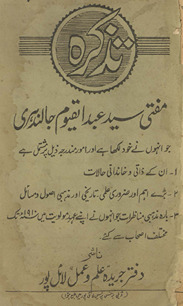 تذکرہ
مفتی سید عبدالقیوم جالندہری
جو انہوں نے خود لکھا ہے اور امور مندرجہ ذیل پر مشتمل ہے
۱- ان کے ذاتی و خاندانی حالات
۲- بڑے اہم اور ضروری علمی تاریخی اور مذہبی اصول و مسائل
۳- بارہ مذہبی مناظرات جو انہوں نے اپنے عہد مولویت میں ۱۹۱۰ء تک
مختلف اصحاب سے کئے
ناشر
دفتر جریدہ علم و عمل لائل پور